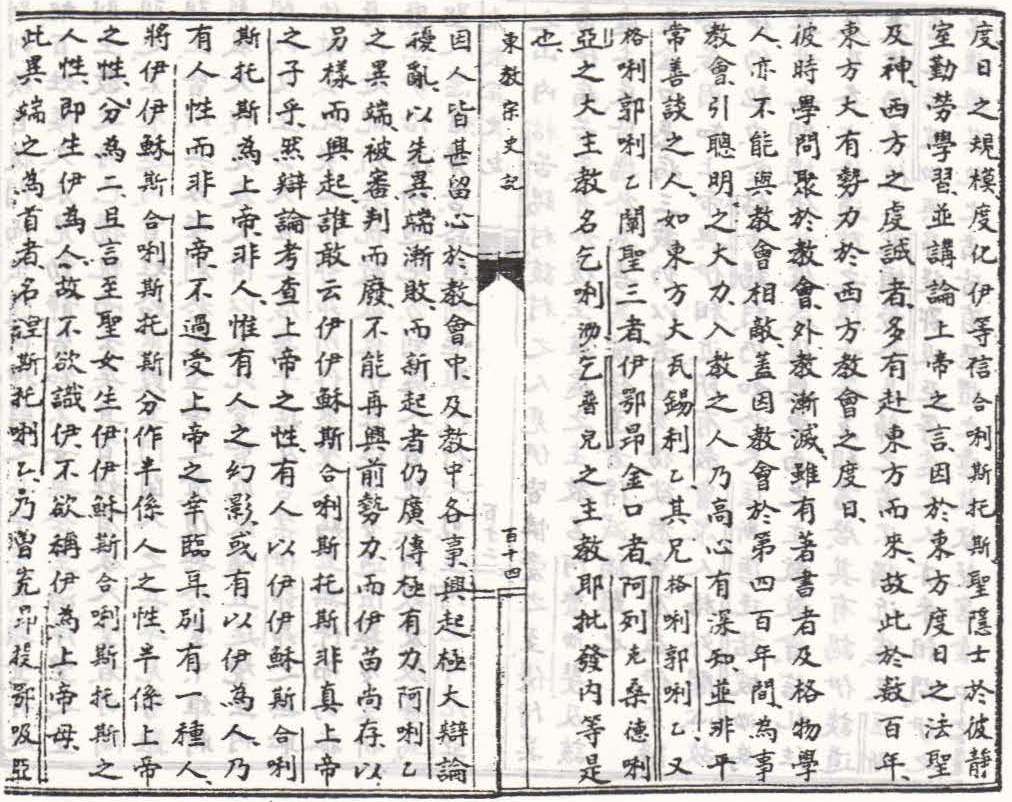 度日之規模、度化伊等信合唎斯托斯聖隱士於彼靜
室勤勞學習、並講論上帝之言、因於東方度日之法聖
及神、西方之虔誠者、多有赴東方而來、故此於數百年、
東方大有勢力於西方教會之度日、
彼時學問聚於教會、外教漸滅、雖有著書者及格物學
人、亦不能與教會相敵、蓋因教會於第四百年間、為事
教會、引聰明之大力、入教之人乃高心有深知、並非平
常善談之人、如東方大瓦錫利乙、其兄格唎郭唎乙又
格唎郭唎乙闡聖三者、伊鄂昂金口者、阿列克桑德唎
亞之大主教名乞唎泐、乞普兒之主教耶批發内等是
也、
東教宗史記
百十四
因人皆甚留心於教會中、及教中各事、興起極大辯論
擾亂、以先異端漸敗、而新起者仍廣傳極有力、阿唎乙
之異端、被審判而廢、不能再興前勢力、而伊苗尚存、以
另樣而興起、誰敢云伊伊穌斯合唎斯托斯非真上帝
之子乎、然辯論考查上帝之性、有人以伊伊穌斯合唎
斯托斯為上帝、非人、惟有人之幻影、或有以伊為人、乃
有人性而非上帝、不過受上帝之幸臨耳、別有一種人、
將伊伊穌斯合唎斯托斯分作半係人之性、半係上帝
之性、分為二、且言至聖女生伊伊穌斯合唎斯托斯之
人性、即生伊為人、故不欲識伊、不欲稱伊為上帝母、
此異端之為首者、名涅斯托唎乙、乃鄂吸亞